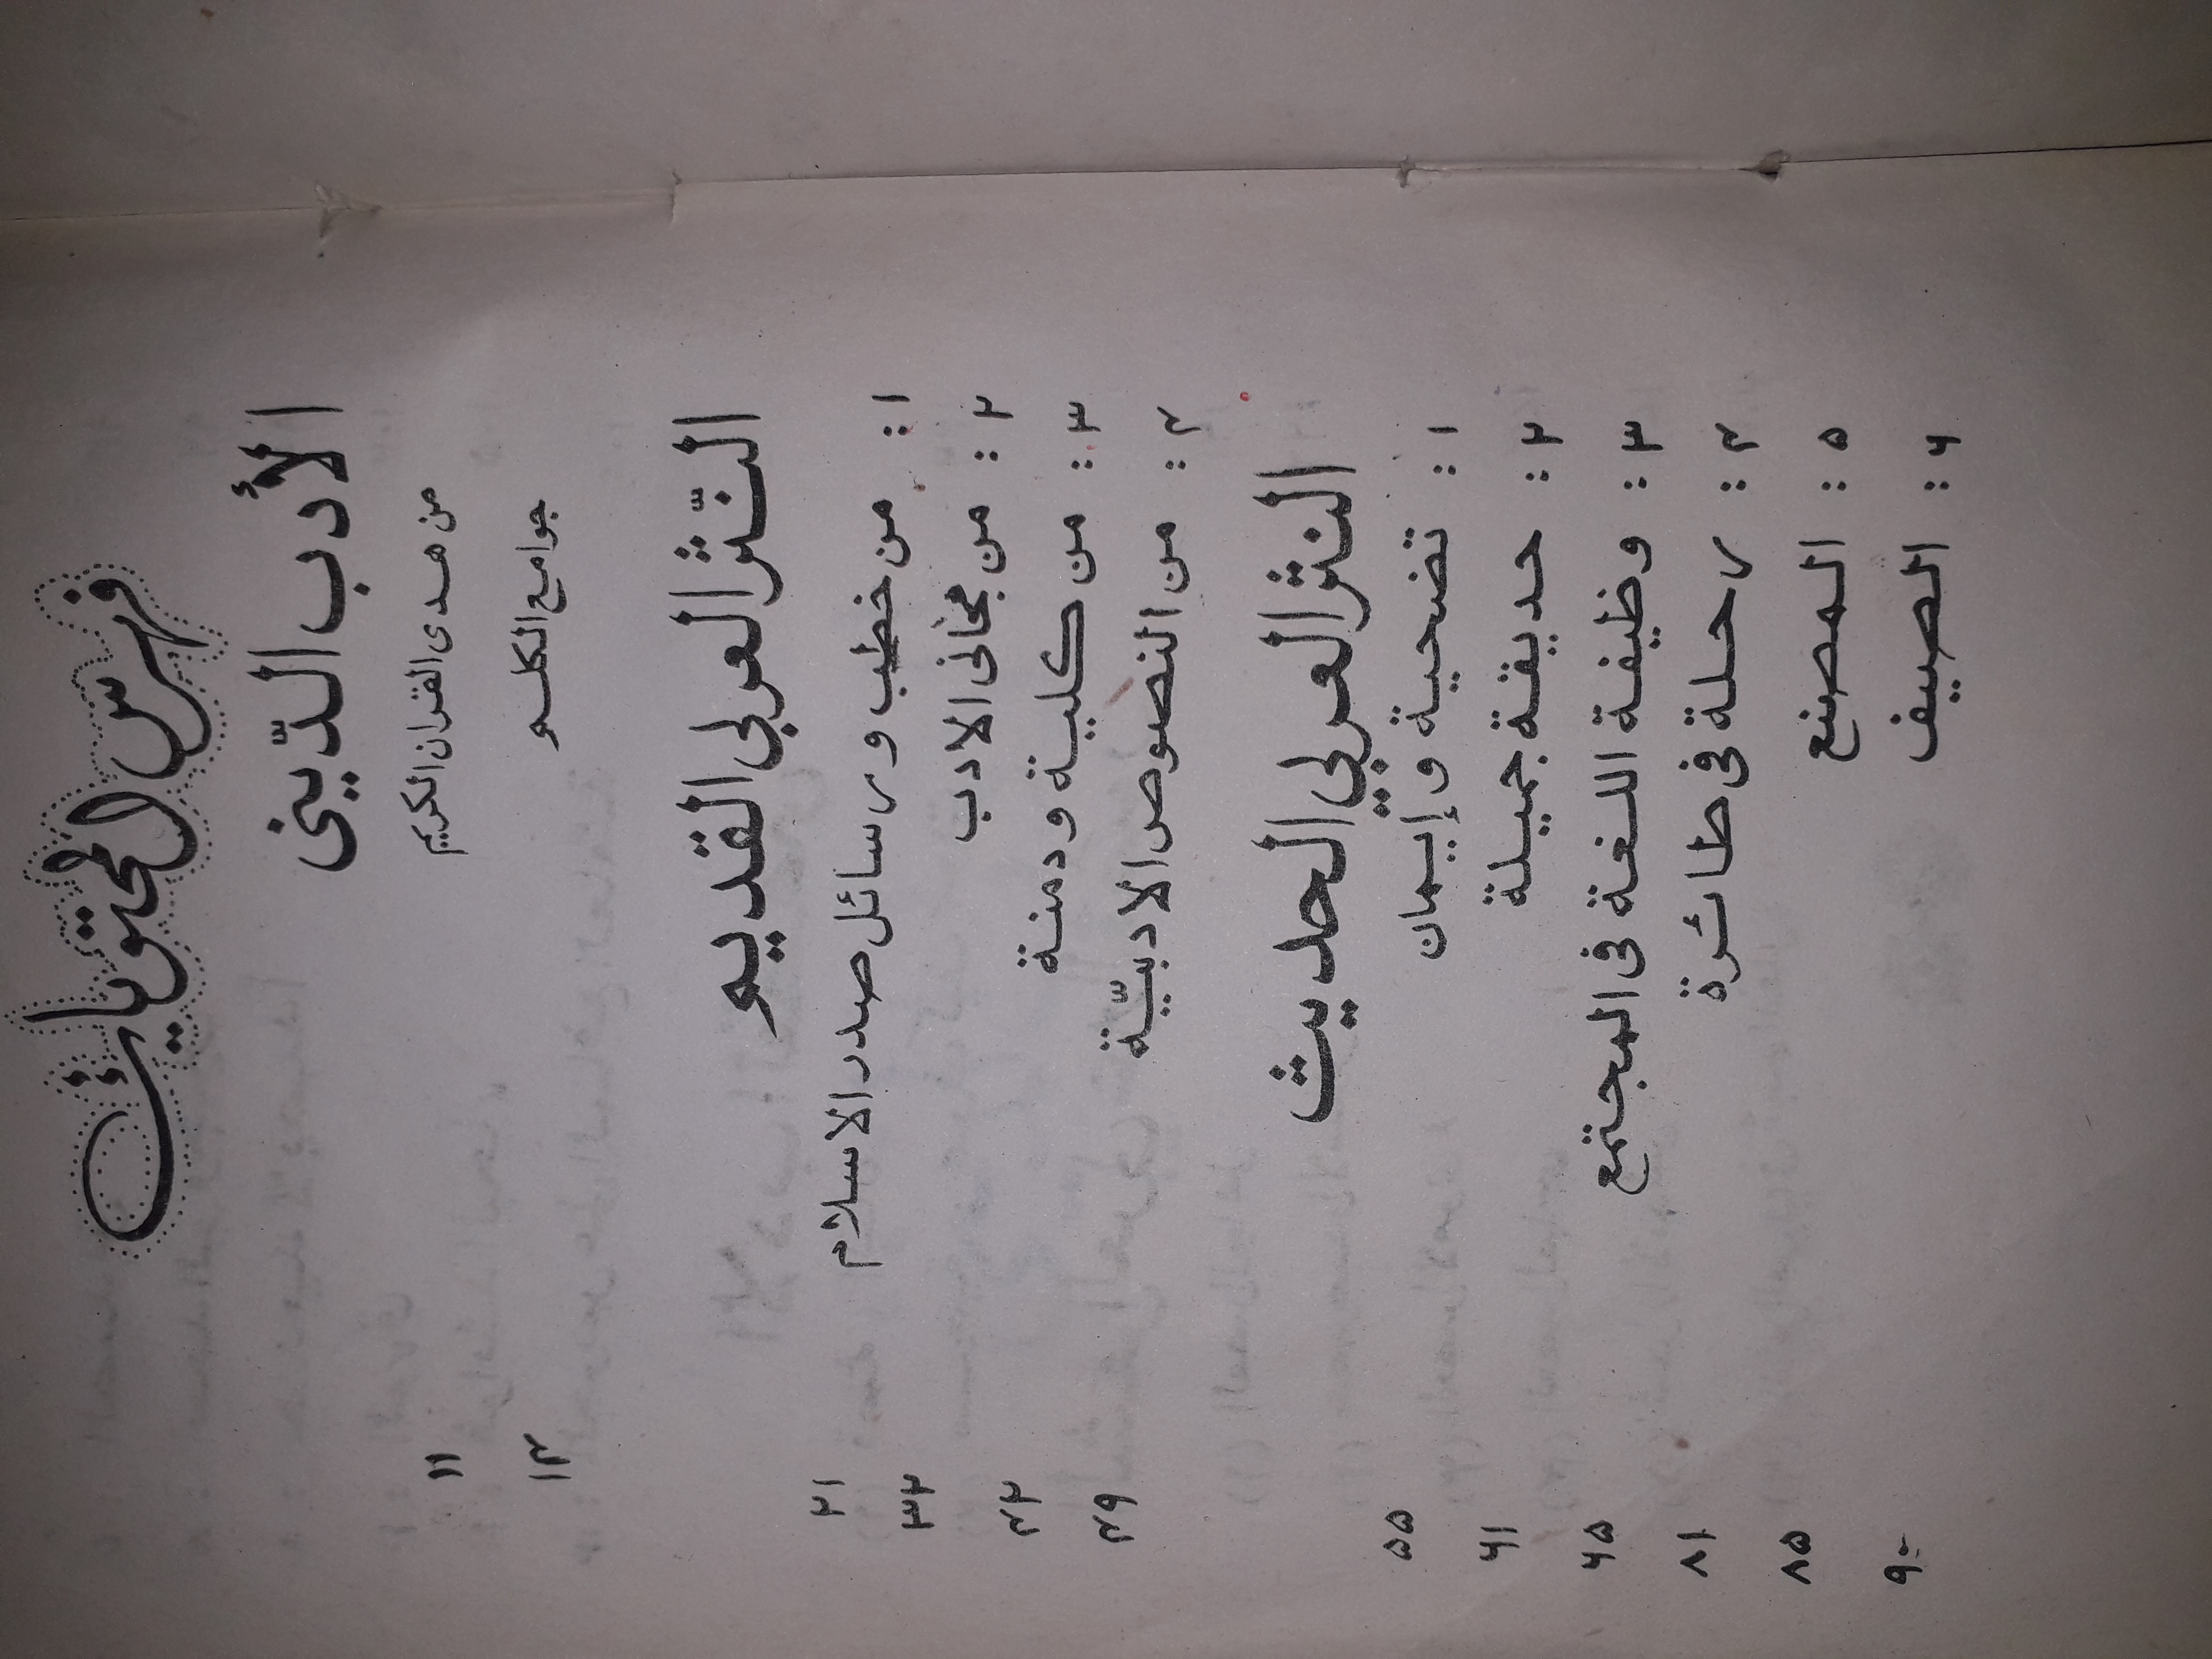 فهرس المحتويات
الأدب الدّيني
من هدى القران الكريم ١١
جوامع الكلم ١٤
النّثر العربى القديم
١ : من خطب و رسائل صدر الاسلام ٢١
٢ : من مجانى الادب ٣٣
٣ : من كليلة و دمنة ٤٢
٤ : من النصوص الادبيّة ٤٩
النثر العربي الحديث
١ : تضحية و إيمان ۵۵
٢ : حديقة جميلة ۶١
٣ : وظيفة اللغة فى المجتمع ۶۵
٤ : رحلة فى طائرة ٨١
۵ : المصنع ٨۵
۶ : الصيف ٩٠